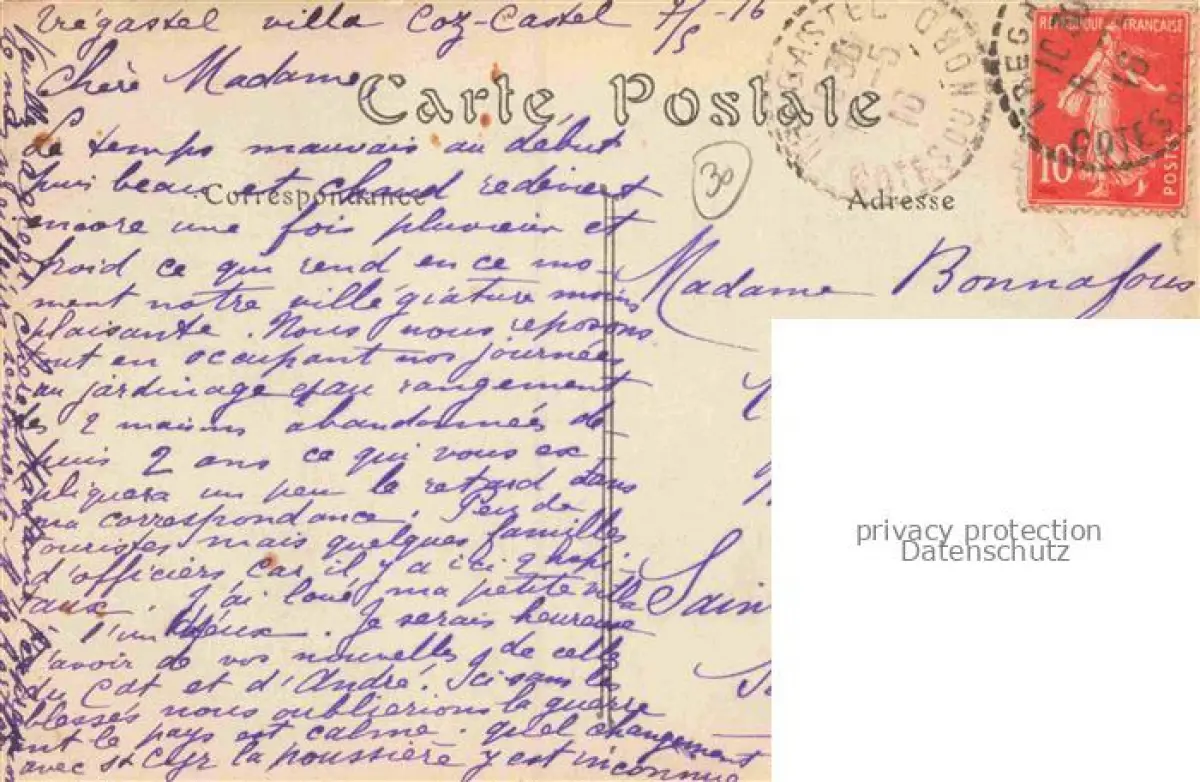 Trégastel villa Coz-Castel 7/5-16
Chère Madame,
Carte Postale
Correspondance
Adresse
Le temps mauvais au début
puis beau et chaud redevient
encore une fois pluvieux et
froid ce qui rend en ce mo-
ment notre villégiature moins
plaisante. Nous nous reposons
tout en occupant nos journées
au jardinage et au rangement
des 2 maisons abandonnées de-
puis 2 ans ce qui vous ex-
pliquera un peu le retard dans
ma correspondance. Peu de
touristes mais quelques familles
d'officiers car il y a ici 2 hopi-
taux. J'ai loué ma petite villa
à l'un d'eux. Je serais heureuse
d'avoir de vos nouvelles de celles
du Cdt et d'André. Ici sans les
blessés nous oublierions la guerre
tant le pays est calme. quel changement
avec St Cyr la poussière y est inconnue
Veuillez
chère Madame
30
Madame Bonnafous
Sain
TREGASTEL
COTES DU NORD
5
16
REPUBLIQUE FRANÇAISE
10
POSTES
TREG
COTES
privacy protection
Datenschutz